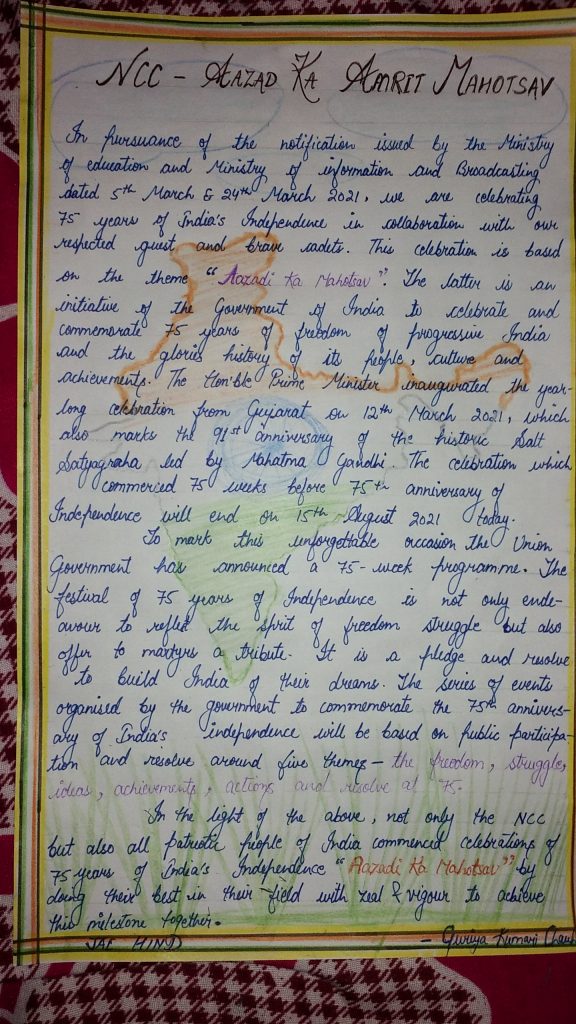 NCC - AAZAD KA AMRIT MAHOTSAV
In pursuance of the notification issued by the Ministry
of education and Ministry of information and Broadcasting
dated 5th March & 24th March 2021, we are celebrating
75 years of India's Independence in collaboration with our
respected guest and brave cadets. This celebration is based
on the theme "Aazadi Ka Mahotsav". The latter is an
initiative of the Government of India to celebrate and
commemorate 75 years of freedom of progressive India
and the glories history of its people, culture and
achievements. The Hon'ble Prime Minister inaugurated the year-
long celebration from Gujarat on 12th March 2021, which
also marks the 91st anniversary of the historic Salt
Satyagraha led by Mahatma Gandhi. The celebration which
commenced 75 weeks before 75th anniversary of
Independence will end on 15th August 2021 today.
To mark this unforgettable occasion the Union
Government has announced a 75-week programme. The
festival of 75 years of Independence is not only ende-
avour to reflect the spirit of freedom struggle but also
offer to martyrs a tribute. It is a pledge and resolve
to build India of their dreams. The series of events
organised by the government to commemorate the 75th annivers-
ary of India's independence will be based on public participa-
tion and resolve around five themes - the freedom, struggle,
ideas, achievements, actions and resolve at 75.
In the light of the above, not only the NCC
but also all patriotic people of India commenced celebrations of
75 years of India's Independence "Aazadi Ka Mahotsav" by
doing their best in their field with zeal & vigour to achieve
this milestone together.
JAI HIND - Guriya Kumari